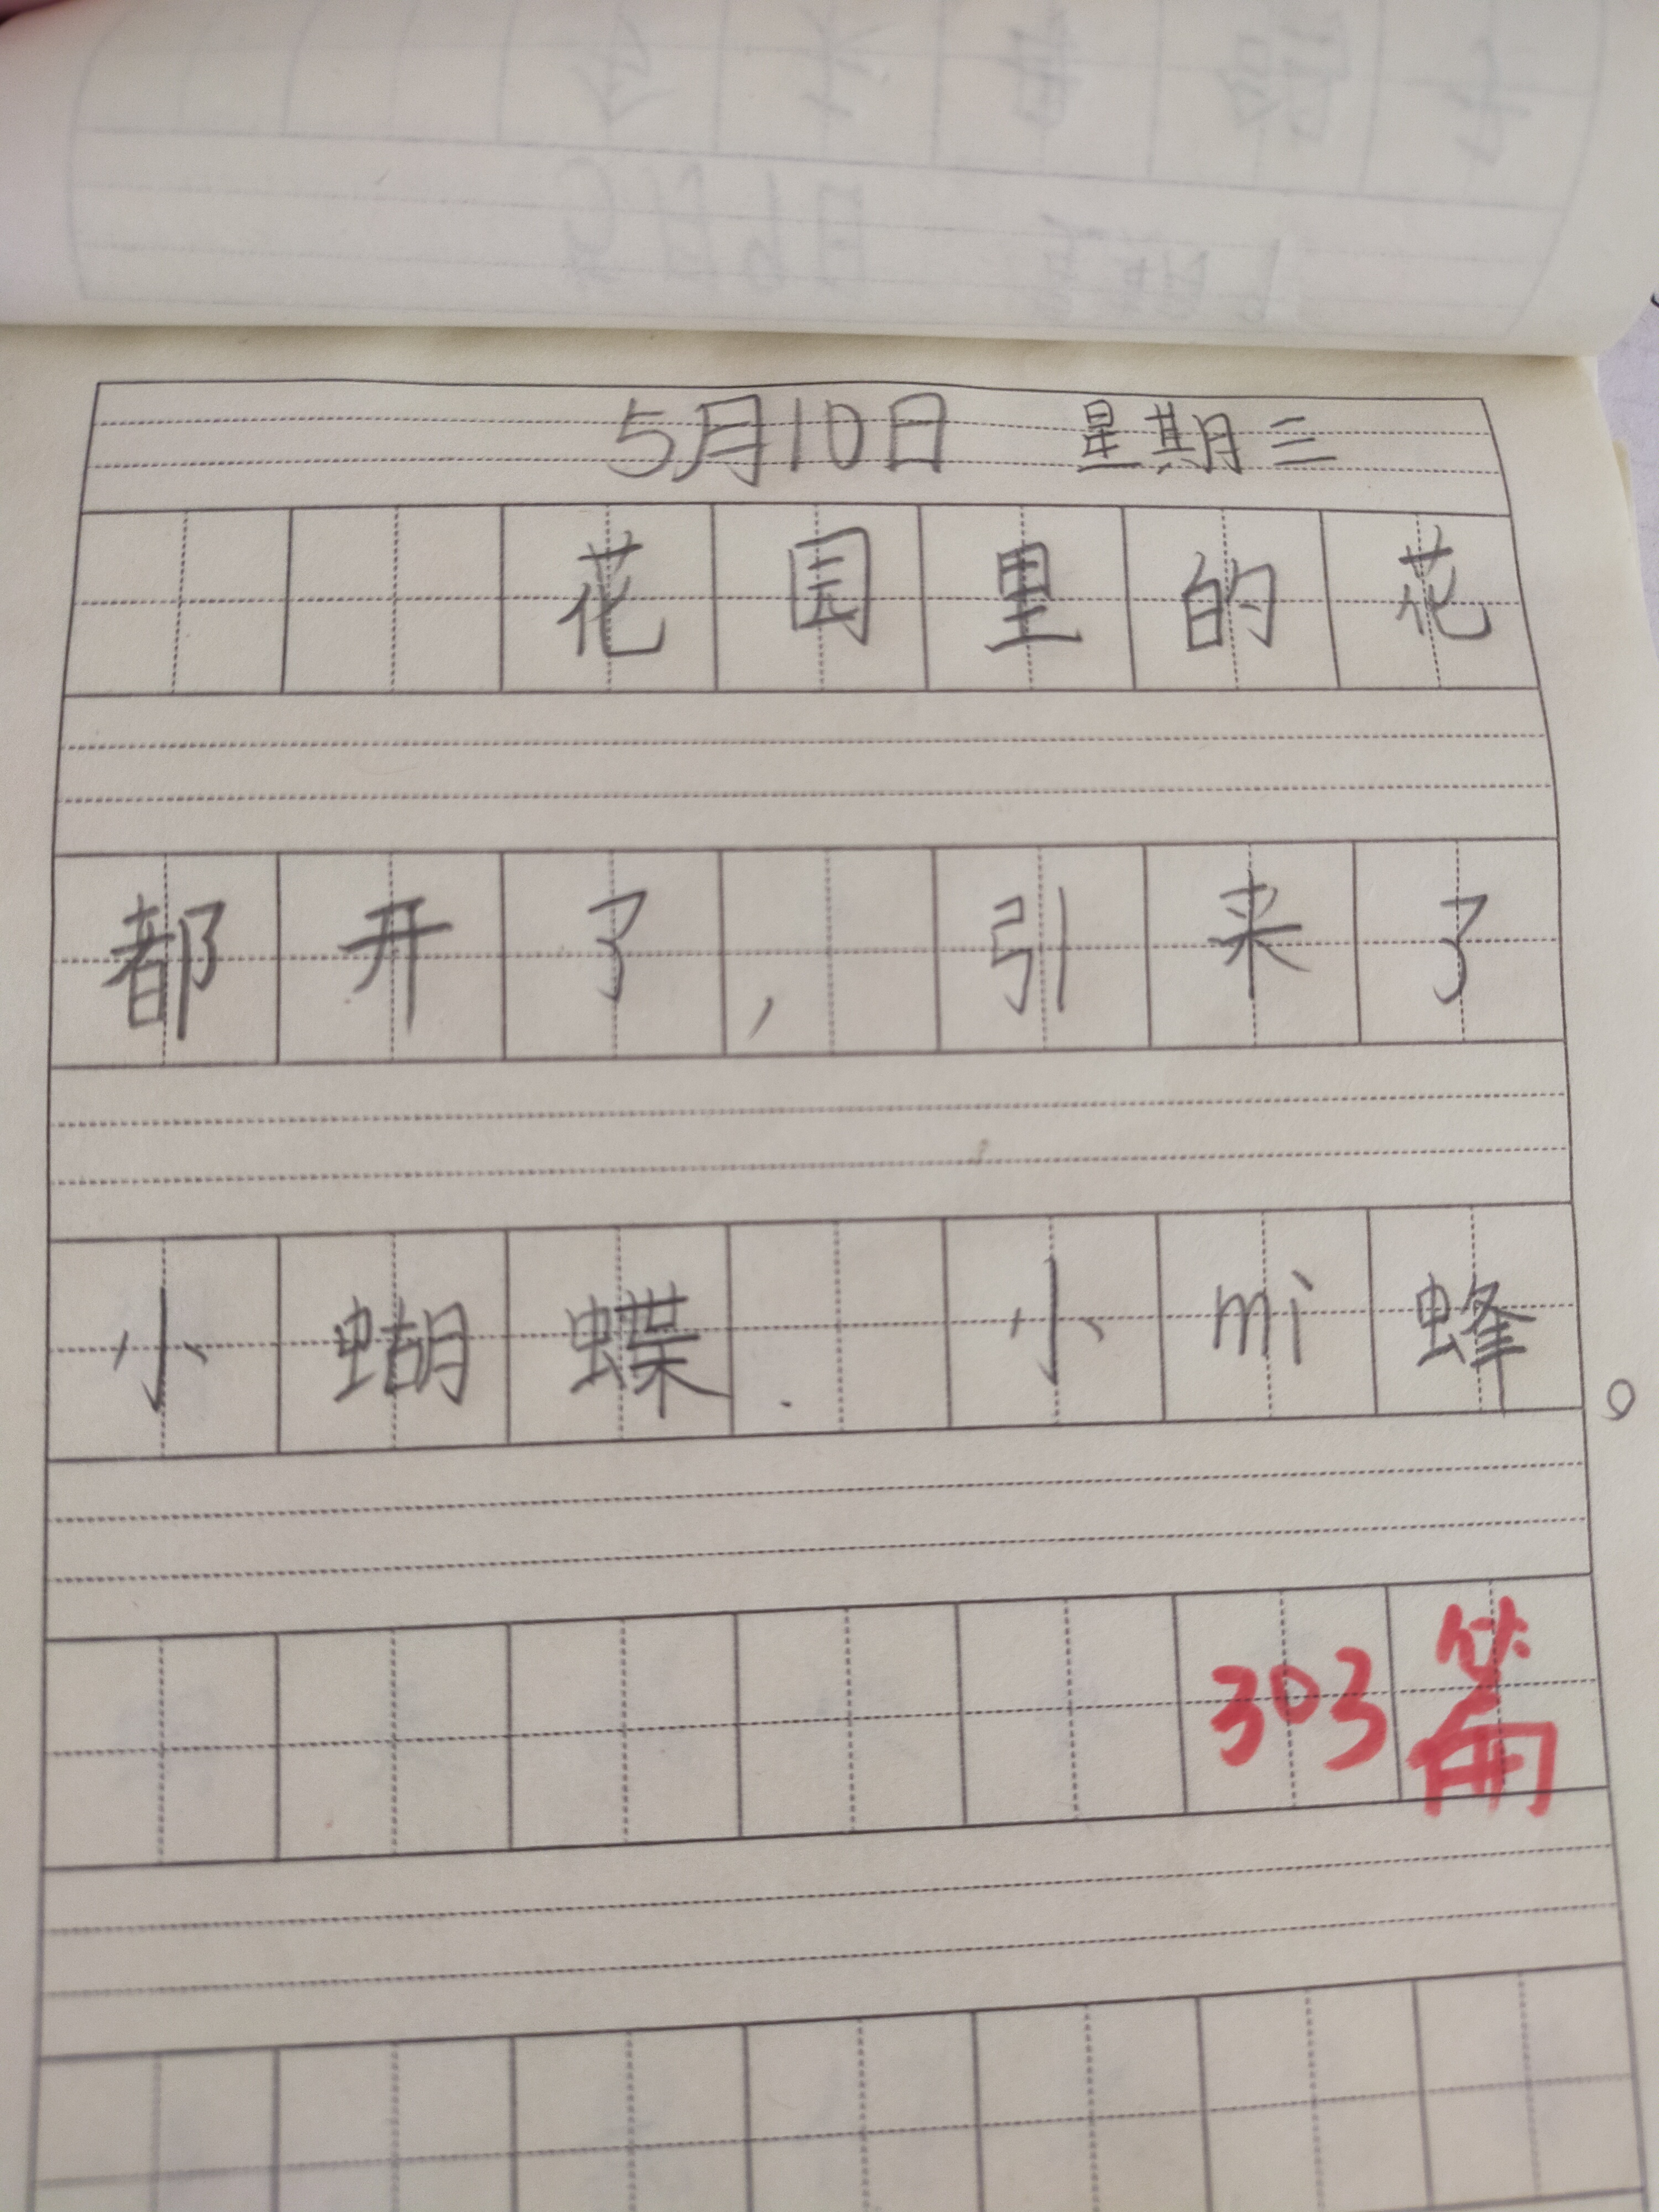 5月10日 星期三
花园里的花
都开了,引来了
小蝴蝶.小mi蜂。
303篇